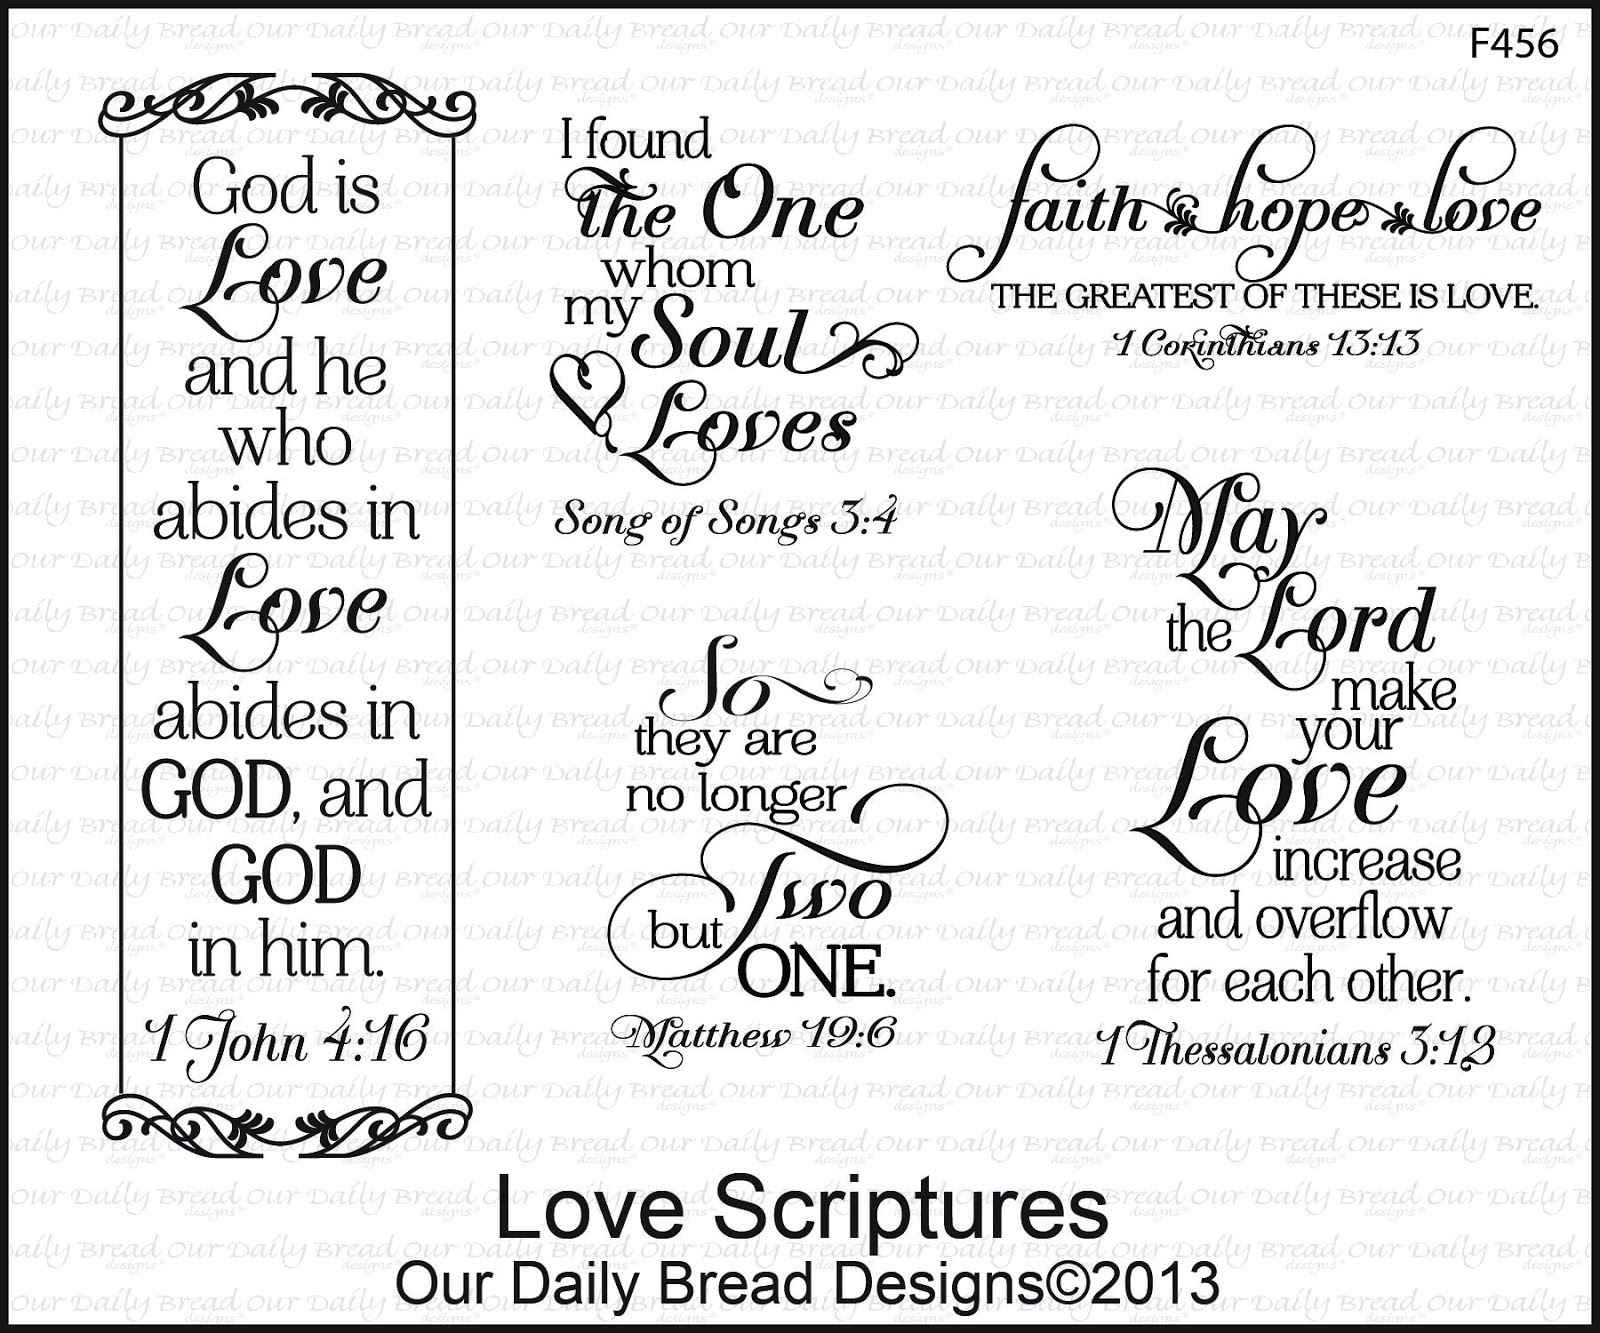 F456
God is
Love
and he
who
abides in
Love
abides in
GOD, and
GOD
in him.
1 John 4:16
I found
the One
whom
my Soul
Loves
Song of Songs 3:4
faith hope love
THE GREATEST OF THESE IS LOVE.
1 Corinthians 13:13
So
they are
no longer
Two
but
ONE.
Matthew 19:6
May
the Lord
make
your
Love
increase
and overflow
for each other.
1 Thessalonians 3:12
Love Scriptures
Our Daily Bread Designs©2013
Our Daily Bread
designs©